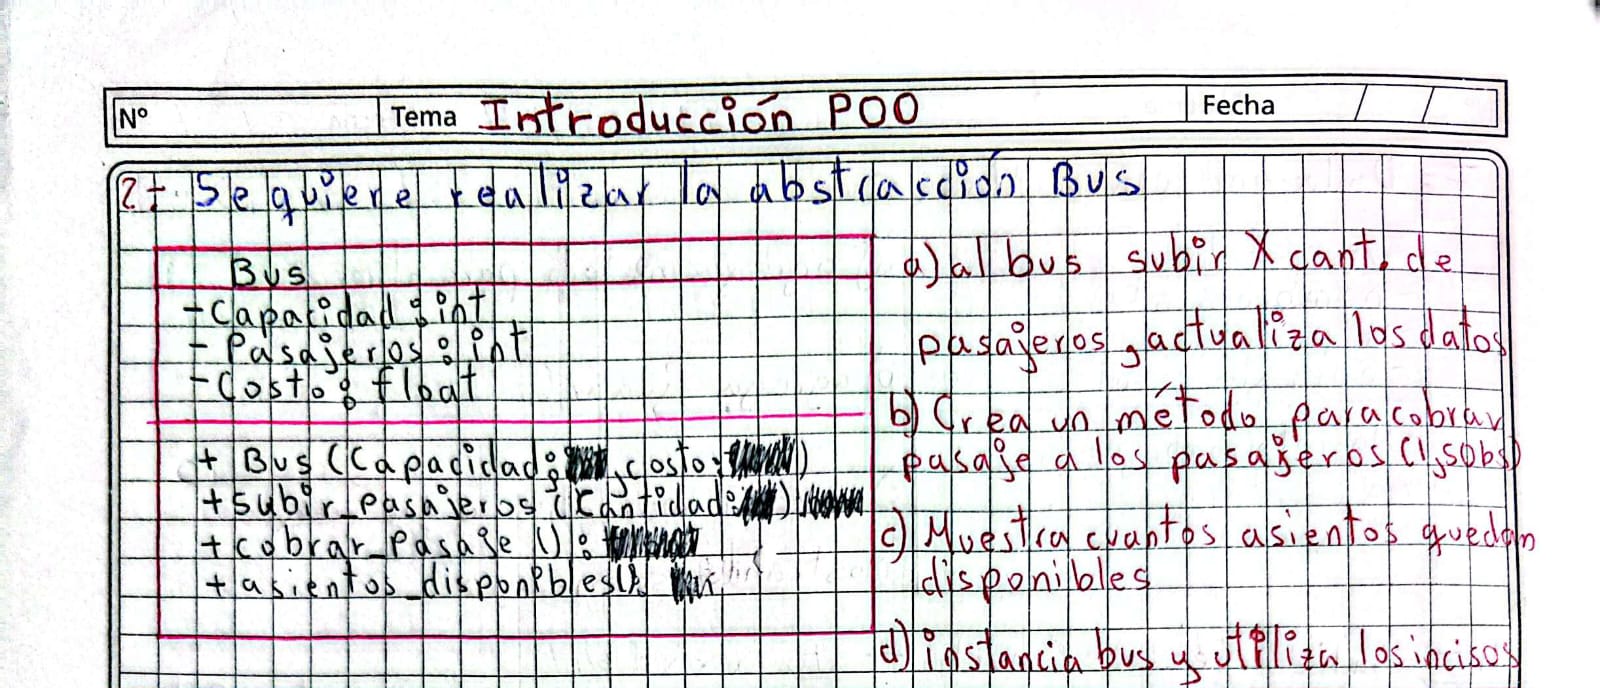 Nº Tema Introducción POO Fecha / /
2+. Se quiere realizar la abstracción Bus
Bus
-Capacidad : int
- Pasajeros : int
-Costo : float
+ Bus (Capacidad: , costo: )
+ subir_pasajeros (Cantidad: )
+ cobrar_pasaje () :
+ asientos_disponibles():
a) al bus subir X cant. de
pasajeros, actualiza los datos
b) Crea un método para cobrar
pasaje a los pasajeros (1,50bs)
c) Muestra cuantos asientos quedan
disponibles
d) instancia bus y utiliza los incisos